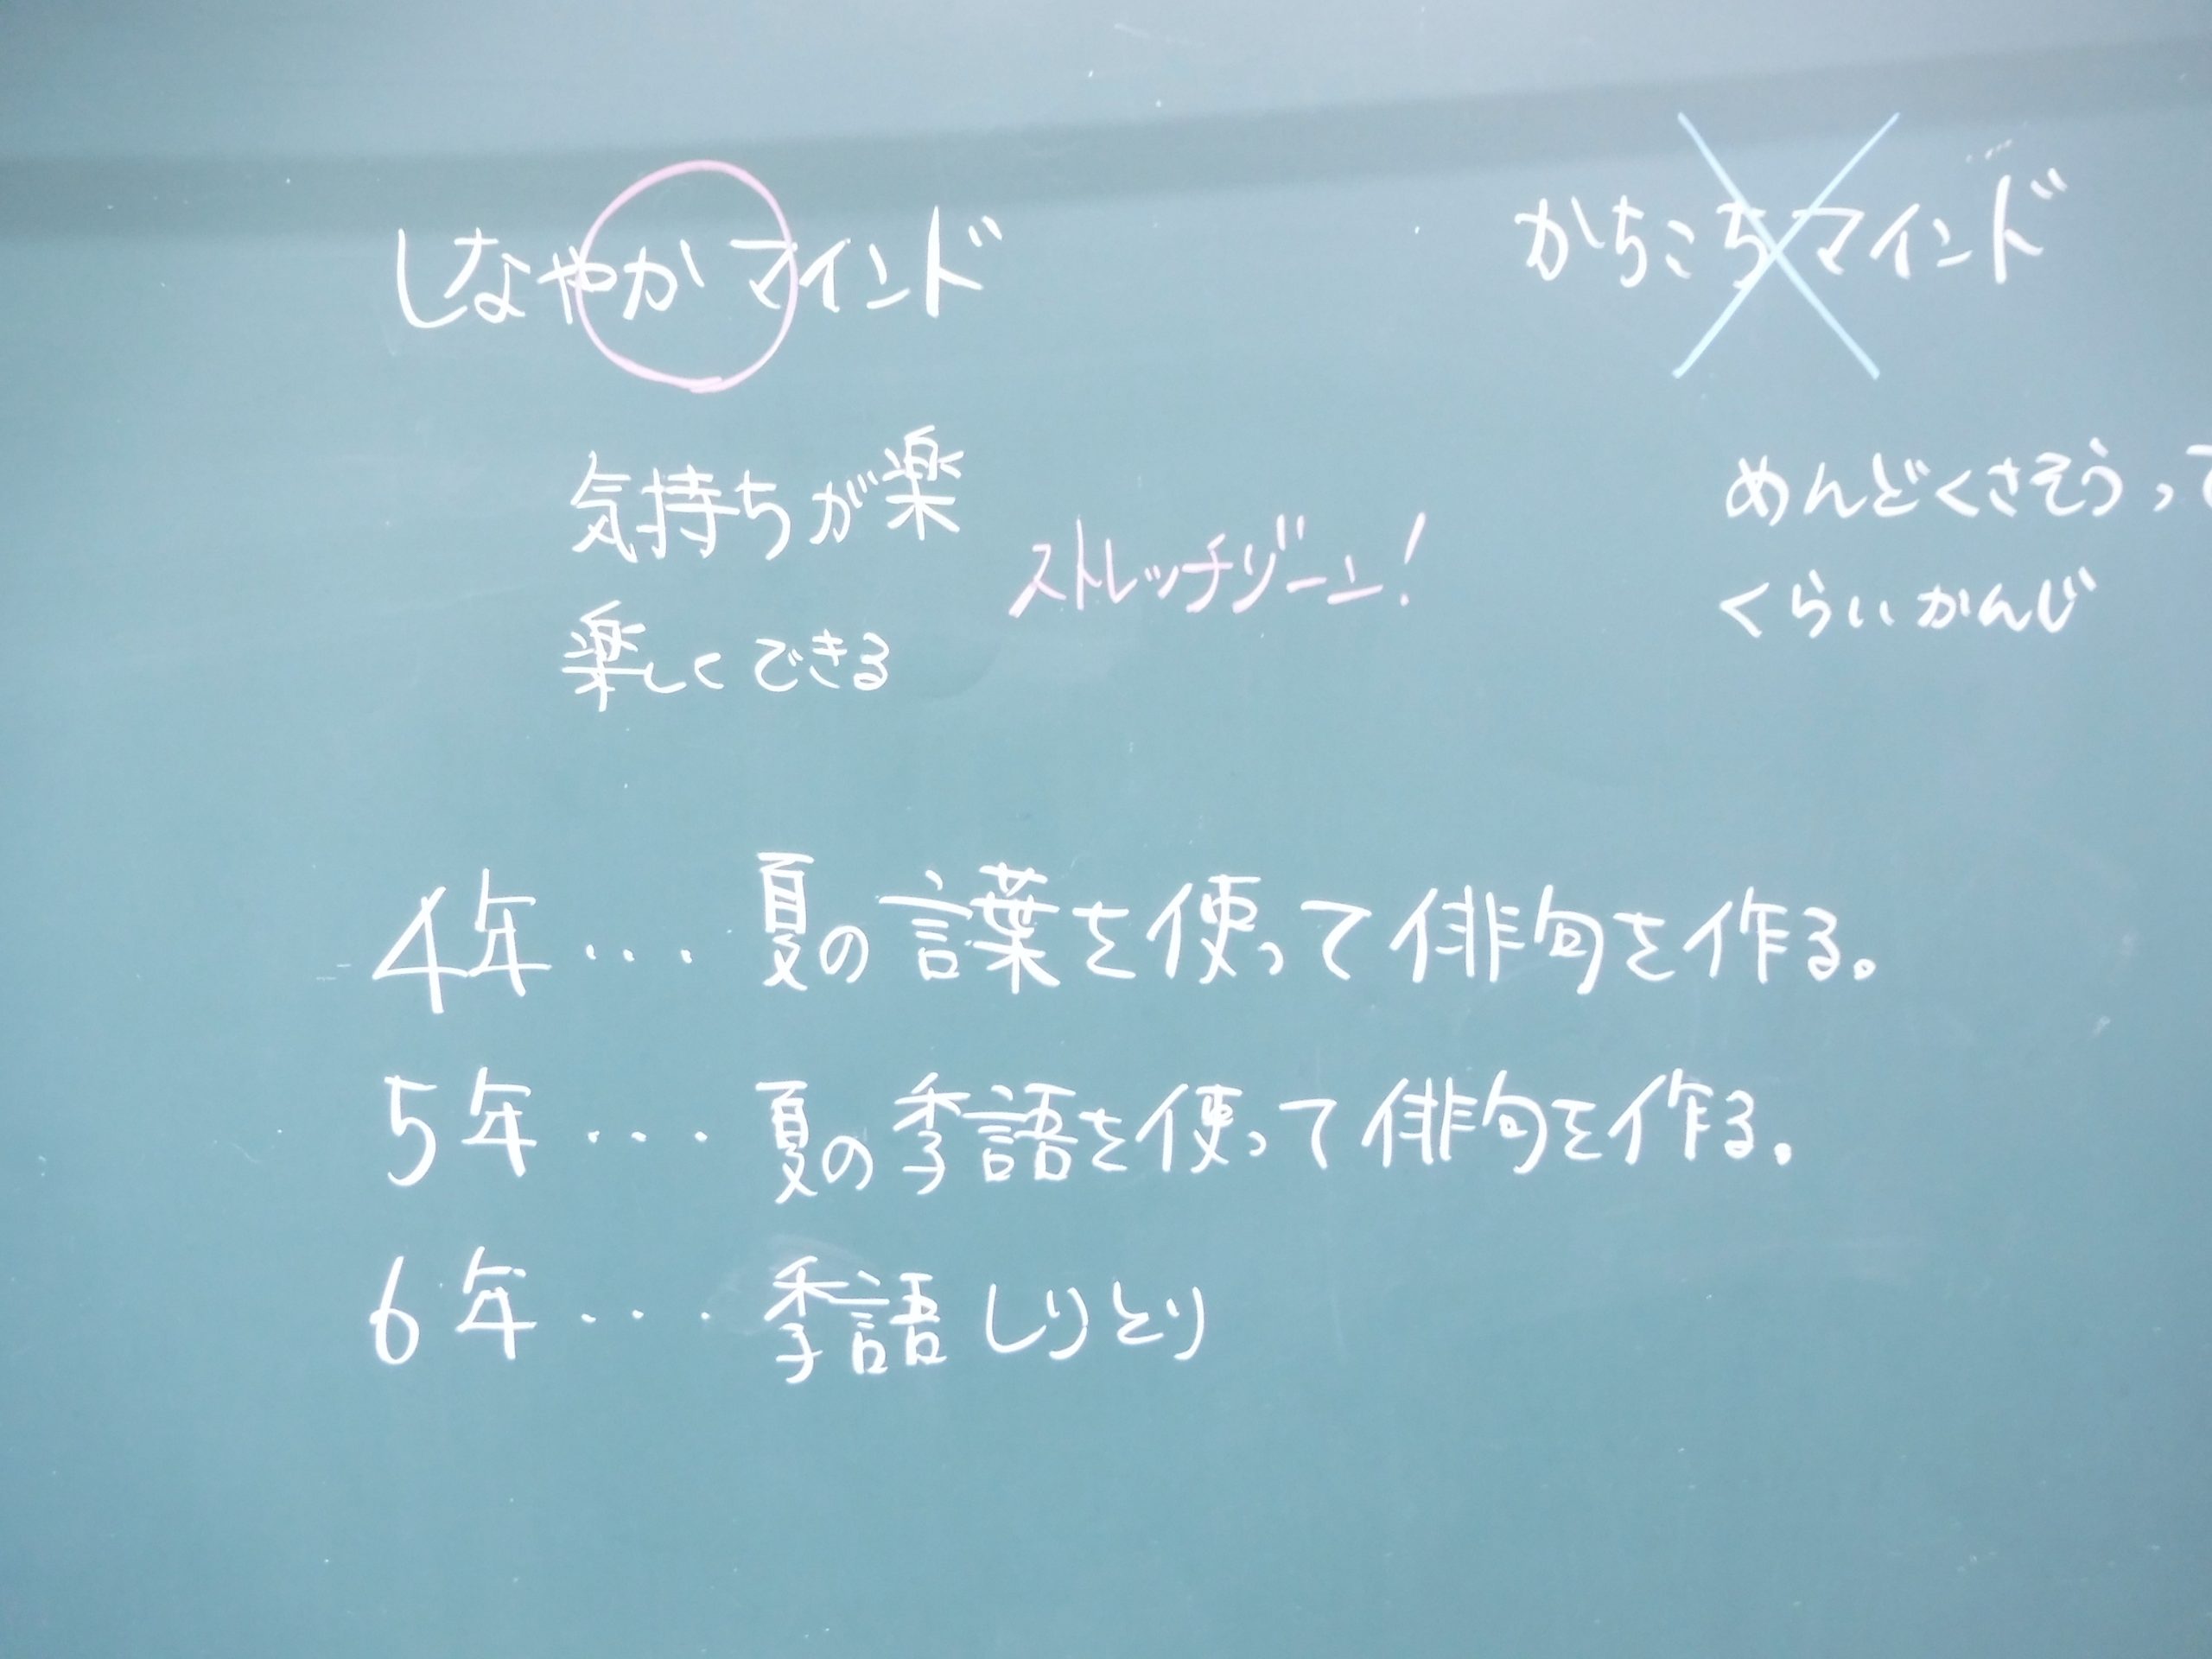 しなやかマインド
かちこちマインド
気持ちが楽
ストレッチゾーン!
楽しくできる
めんどくさそうって
くらいかんじ
4年・・・夏の言葉を使って俳句を作る。
5年・・・夏の季語を使って俳句を作る。
6年・・・季語しりとり